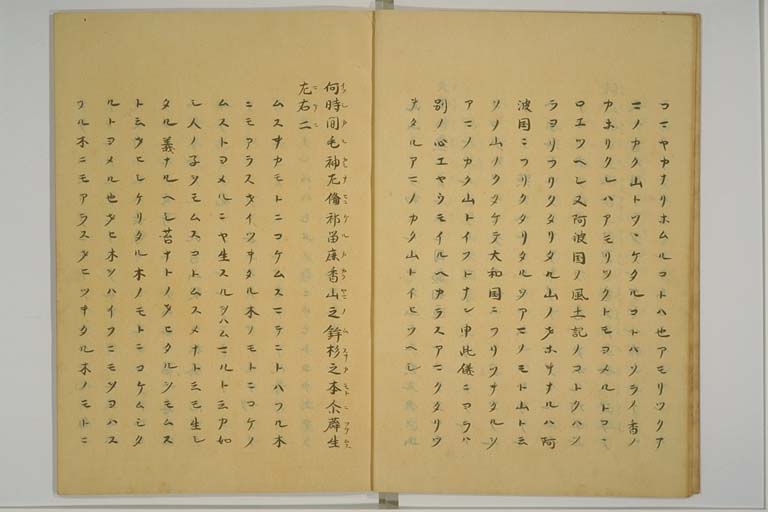 コニヤカナリホムルコトハ也アモリツクナ
ニノカク山トツヽケタルコトハソラノ香ノ
カホリクレハアモリツクトモヨメルトコヽニ
ロエツヘシ又阿波国ノ風土記ノコトクハソ
ラヨリフリクタリタル山ノオホキナルハ阿
波国ニフリクタリタルヲアマノモト山ト云
ソノ山ノクタケテ大和国ニフリツキタルヲ
アマノカク山トイフトナン申此儀ニヨラハ
別ノ心エヤウモイルヘカラスアマクタリツ
キタルアマノカク山トイヒツヘシ
何時間毛神左備祁留鹿香山之鉾杉之本尓薜生
左右二
ムスホカモトニコケムスマテニトハフル木
ニモアラスオイツキタル木ノモトニコケノ
ムストヨメルニヤ生スルヲハムマルト云カ如
シ人ノ子ヲモムスコトムスメナト云モ生シ
タル義ナルヘシ苔ナトノオヒタルシモムス
ト云ケヒシケリタル木ノモトニコケムシタ
ルトヨメル也オヒ木ヲハイフニモヲヨハス
フル木ニモアラスタヒツキタル木ノモトニ